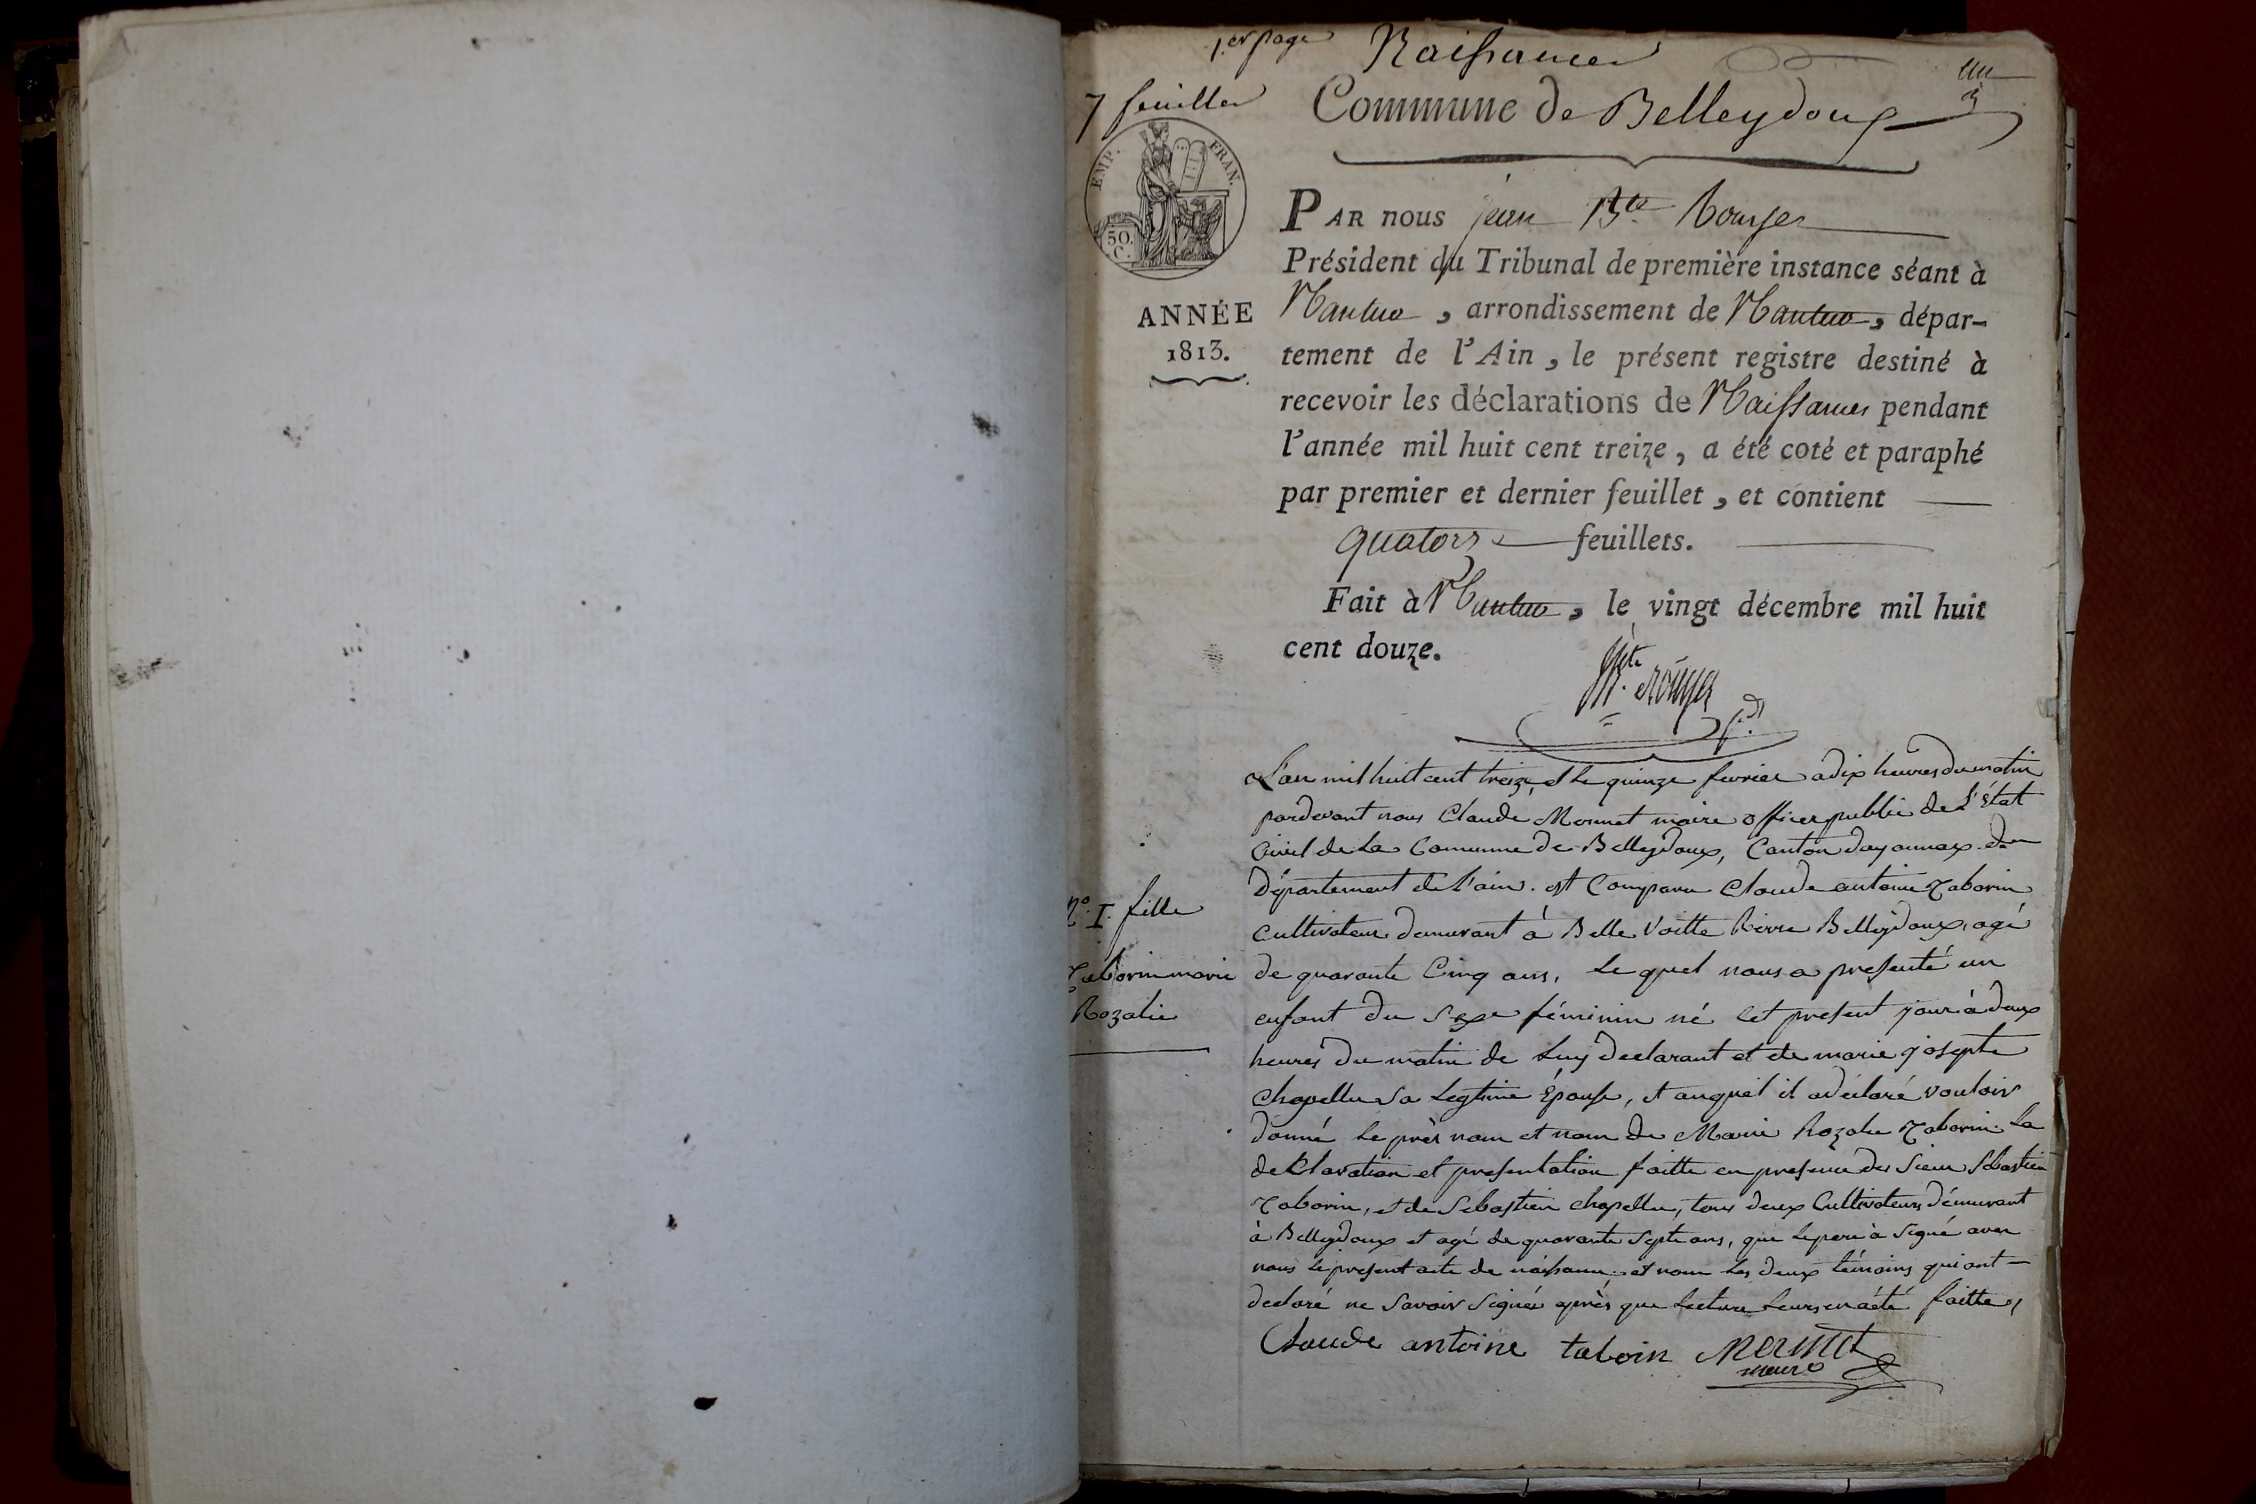 1.er page Naissances
un
7 feuilles
Commune de Belleydoux
EMP. FRAN.
50. C.
ANNÉE
1813.
PAR nous jean Bte Rouyer
Président du Tribunal de première instance séant à
Nantua, arrondissement de Nantua, dépar-
tement de l'Ain, le présent registre destiné à
recevoir les déclarations de Naissances pendant
l'année mil huit cent treize, a été coté et paraphé
par premier et dernier feuillet, et contient
quatorze feuillets.
Fait à Nantua, le vingt décembre mil huit
cent douze.
JBte Rouyer
pdt
L'an mil huit cent treize, et le quinze fevrier a dix heures du matin
pardevant nous Claude Mermet maire officier public de L'État
Civil de La Commune de Belleydoux, Canton doyonnax du
Département de L'ain. est Comparu Claude antoine Taborin
Cultivateur demeurant à Belle Voitte Rierre Belleydoux, agé
de quarante Cinq ans, Le quel nous a presenté un
enfant du Sexe féminin né Cet present jour à deux
heures du matin de Luy declarant et de marie josepte
Chapellu Sa Legtime Épouse, et auquel il a déclaré vouloir
donné Le près nom et nom de Marie Rozalie Taborin. La
deklaration et presentation faitte en presence des Sieur Sebastien
Taborin, et de Sebastien Chapellu, tous deux Cultivateurs démeurant
à Belleydoux et agé de quarante Septe ans, que Le perè à Signé avec
nous Le present acte de naissance. et nom Les deux témoins qui ont
declaré ne Savoir Signée après que Lecture Leurs en a été faitte,
N.o 1. fille
Taborin marie
Rozalie
Claude antoine taboin Mermet
maire